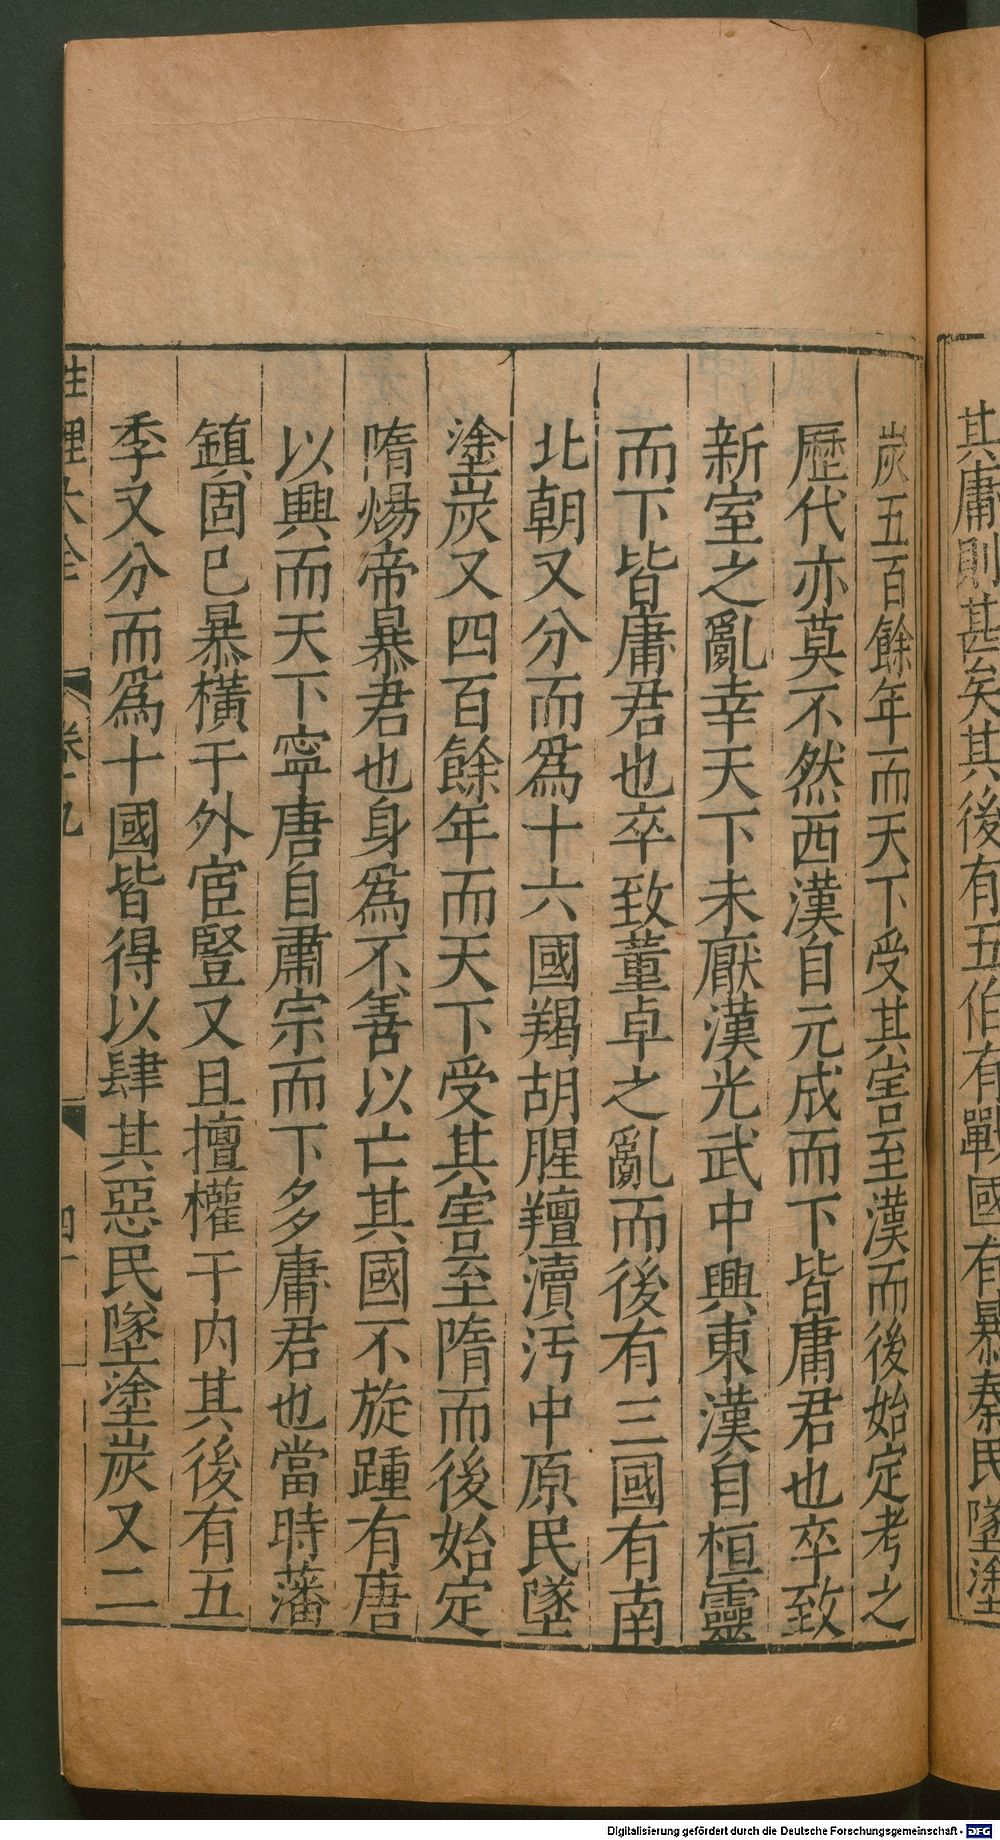 其庸則甚矣其後有五伯有戰國有暴秦民墜塗
炭五百餘年而天下受其害至漢而後始定考之
歷代亦莫不然西漢自元成而下皆庸君也卒致
新室之亂幸天下未厭漢光武中興東漢自桓靈
而下皆庸君也卒致董卓之亂而後有三國有南
北朝又分而爲十六國羯胡腥羶瀆汚中原民墜
塗炭又四百餘年而天下受其害至隋而後始定
隋煬帝暴君也身爲不善以亡其國不旋踵有唐
以興而天下寧唐自肅宗而下多庸君也當時藩
鎮固已暴橫于外宦豎又且擅權于内其後有五
季又分而爲十國皆得以肆其惡民墜塗炭又二
性理大全 卷十九 四十
Digitalisierung gefördert durch die Deutsche Forschungsgemeinschaft - DFG